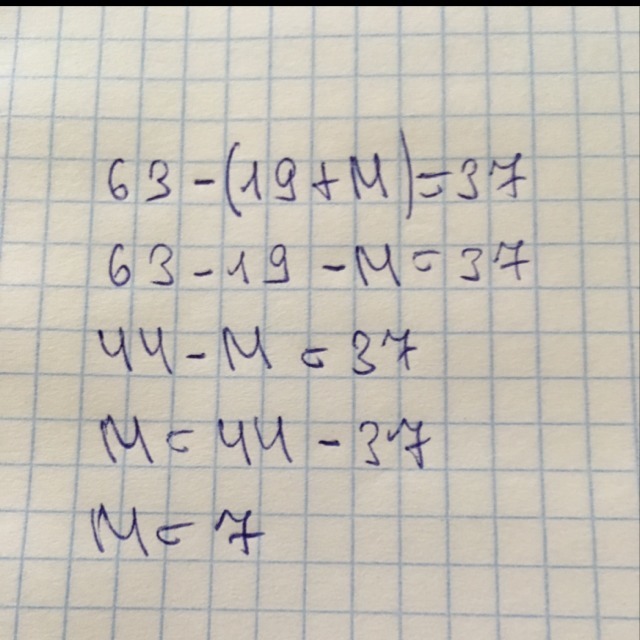 63-(19+M)=37
63-19-M=37
44-M=37
M=44-37
M=7